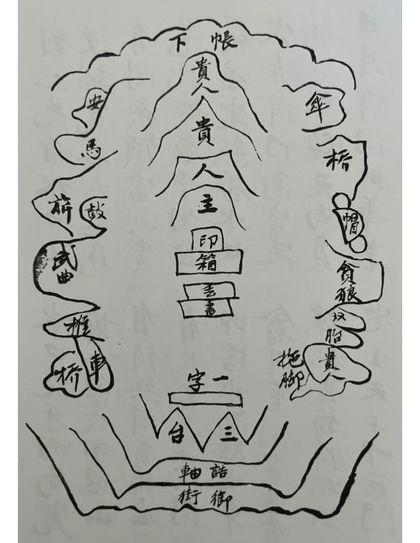 帳下
貴人
貴
人
主
印
箱
一字
三台
誥軸
御街
傘
帽
貪狼
双胎貴人
拖脚
安
馬
鼓
武曲
推車
桥